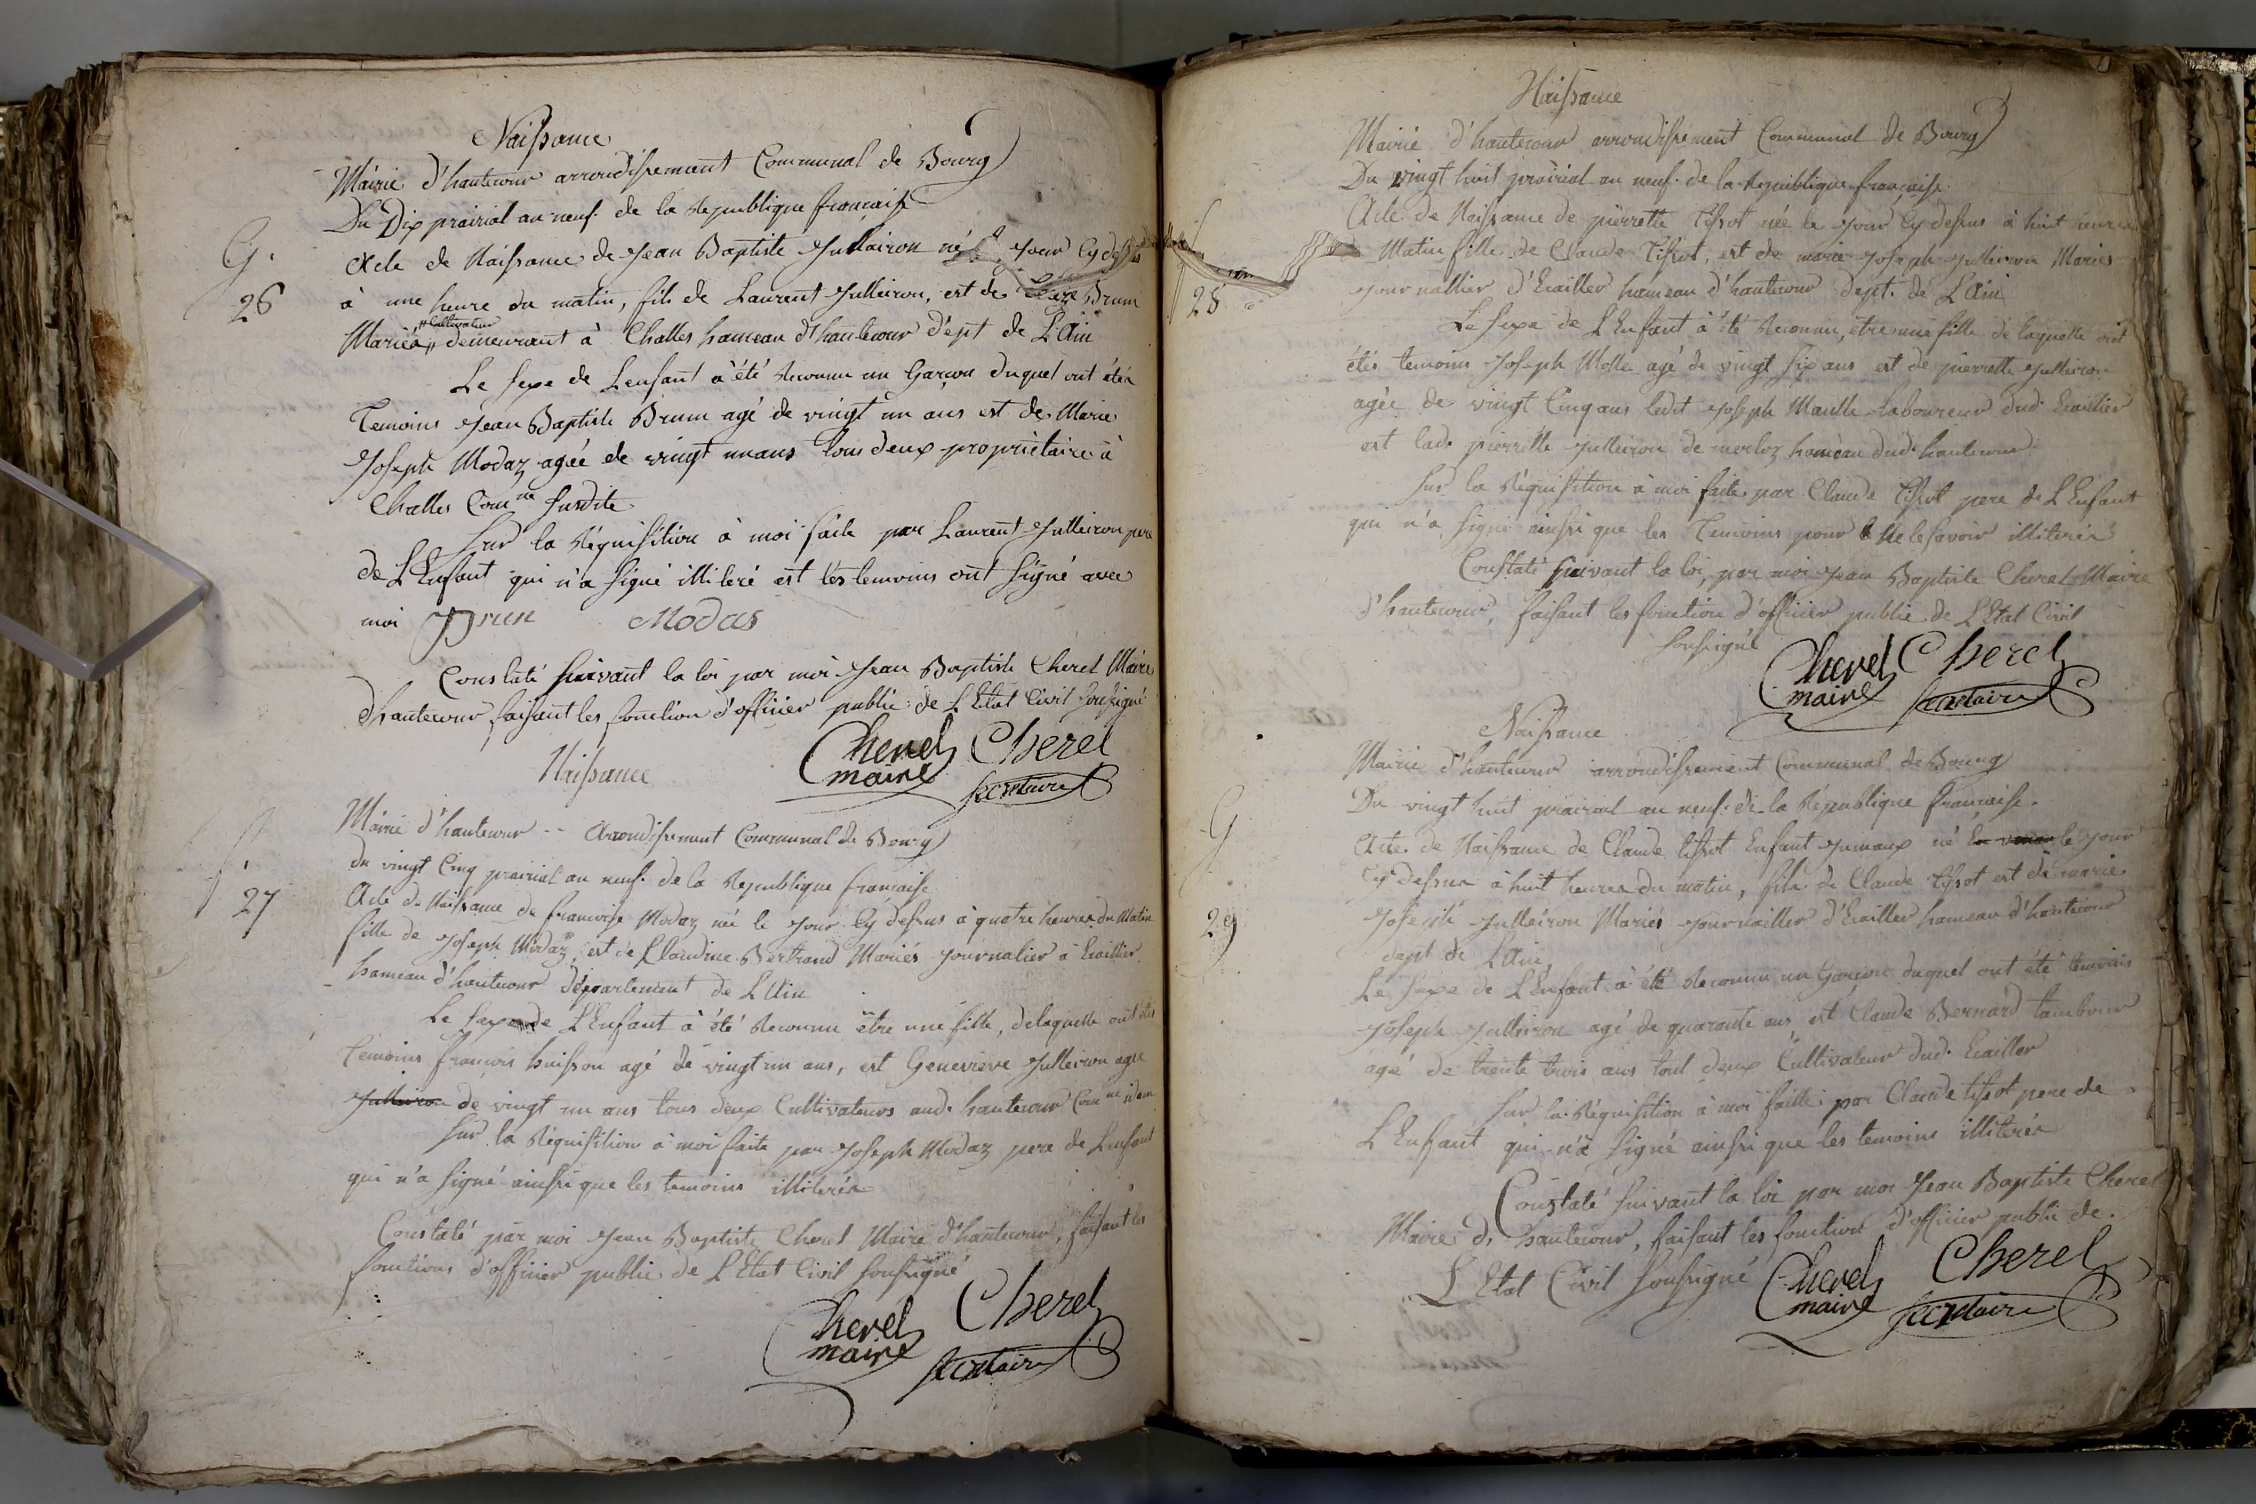 Naissance
Mairie d'hautecour arrondissement Communal de Bourg
Du Dix prairial an neuf. de la Republique française
G.
Acte de Naissance de Jean Baptiste Jullieiron né le Jour Cy dessus
26
à une heure du matin, fils de Laurent Jullieiron, est de Claire Brun
Cultivateur
Mariés, demeurant à Challes hameau d'hautecour dept de L'Ain
Le sexe de Lenfant à été Reconnu un Garçon duquel ont étés
Temoins Jean Baptiste Brun agé de vingt un ans est de Marie
Joseph Modaz agée de vingt unans tous deux propriètaire à
Challes Comne susdite
Sur la Réquisition à moi faite par Laurent Jullieiron pere
de L'Enfant qui n'a signé illiteré est les temoins ont signé avec
moi Brun Modas
Constaté suivant la loi par moi Jean Baptiste Cherel Maire
d'hautecour faisant les fonction d'officier public de L'Etat Civil soussigné
Cherel Cherel
maire secretaire
Naissance
Mairie d'hautecour -- Arrondissement Communal de Bourg
du vingt Cinq prairial an neuf. de la Republique française
f.
27
Acte de Naissance de françoise Modaz née le Jour Cy dessus à quatre heures du Matin
fille de Joseph Modaz, est de Claudine Bertrand Mariés Journalier à Ecaillier
hameau d'hautecour département de L'Ain
Le sexe de L'Enfant à été Reconnu être une fille, delaquelle ont étés
Temoins françois buisson agé de vingt un ans, est Genevieve Jullieiron agée
Jullieiron de vingt un ans tous deux Cultivateurs aud. hautecour Comne idem
Sur la Réquisition à moi faite par Joseph Modaz pere de Lenfant
qui n'a signé ainsi que les temoins illiterés
Constaté par moi Jean Baptiste Cherel Maire d'hautecour, faisant les
fonctions d'officier public de L'Etat Civil soussigné
Cherel Cherel
maire secretaire
Naissance
Mairie d'hautecour arrondissement Communal de Bourg
Du vingt huit prairial an neuf. de la Republique française.
f
Acte de Naissance de pierrette tissot née le Jour Cy dessus à huit heures
Matin fille de Claude Tissot, est de marie Joseph Jullieiron Mariés
28
Journallier d'Ecailler hameau d'hautecour dept. de L'Ain
Le sexe de L'Enfant à été Reconnu, être une fille de laquelle ont
étés temoins Joseph Molle agé de vingt six ans est de pierrette Jullieiron
agée de vingt Cinq ans ledt Joseph Maille laboureur dud. Ecaillier
est lade pierrette Jullieiron de merloz hameau dud. hautecour
Sur la Réquisition à moi faite par Claude tissot pere de L'Enfant
qui n'a signé ainsi que les Temoins pour ne le savoir illiterés
Constaté suivant la loi, par moi Jean Baptiste Cherel Maire
d'hautecour, faisant les fonction d'officier public de L'Etat Civil
soussigné
Cherel Cherel
maire secretaire
Naissance
Mairie d'hautecour arrondissement Communal de Bourg
Du vingt huit prairial an neuf. de la République française.
G
Acte de Naissance de Claude tissot Enfant Jumaux né le Jour
Cy dessus à huit heures du matin, fils de Claude tissot est de marie
29
Joseph Jullieiron Mariés Journailler d'Ecailler hameau d'hautecour
dept de L'Ain
Le sexe de L'Enfant à été Reconnu un Garçon duquel ont été temoins
Joseph Jullieiron agé de quarante ans, est Claude Bernard tambour
agé de trente trois ans tout deux Cultivateur dud. Ecailler
Sur la Réquisition à moi faitte par Claude tissot pere de
L'Enfant qui n'a signé ainsi que les temoins illiterés
Constaté suivant la loi par moi Jean Baptiste Cherel
Maire d. hautecour, faisant les fonction d'officier public de.
L'Etat Civil soussigné
Cherel Cherel
maire secretaire